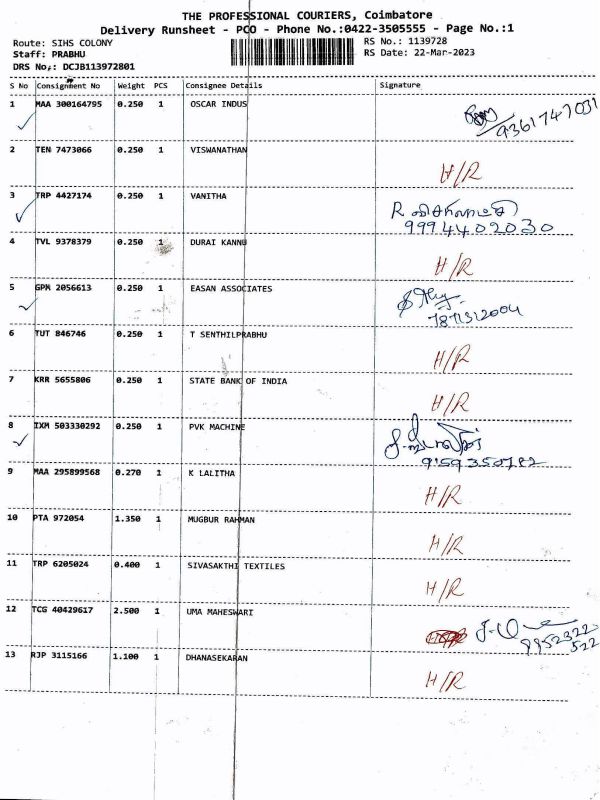 THE PROFESSIONAL COURIERS, Coimbatore
Delivery Runsheet - PCO - Phone No.:0422-3505555 - Page No.:1
Route: SIHS COLONY
RS No.: 1139728
Staff: PRABHU
RS Date: 22-Mar-2023
DRS No,: DCJB113972801
S No Consignment No Weight PCS Consignee Details Signature
1 MAA 300164795 0.250 1 OSCAR INDUS
9361747031
2 TEN 7473066 0.250 1 VISWANATHAN
H/R
3 TRP 4427174 0.250 1 VANITHA
R
9994402030
4 TVL 9378379 0.250 1 DURAI KANNU
H/R
5 GPM 2056613 0.250 1 EASAN ASSOCIATES
6 TUT 846746 0.250 1 T SENTHILPRABHU
H/R
7 KRR 5655806 0.250 1 STATE BANK OF INDIA
H/R
8 IXM 503330292 0.250 1 PVK MACHINE
9 MAA 295899568 0.270 1 K LALITHA
H/R
10 PTA 972054 1.350 1 MUGBUR RAHMAN
H/R
11 TRP 6205024 0.400 1 SIVASAKTHI TEXTILES
H/R
12 TCG 40429617 2.500 1 UMA MAHESWARI
9952322
522
13 RJP 3115166 1.100 1 DHANASEKARAN
H/R